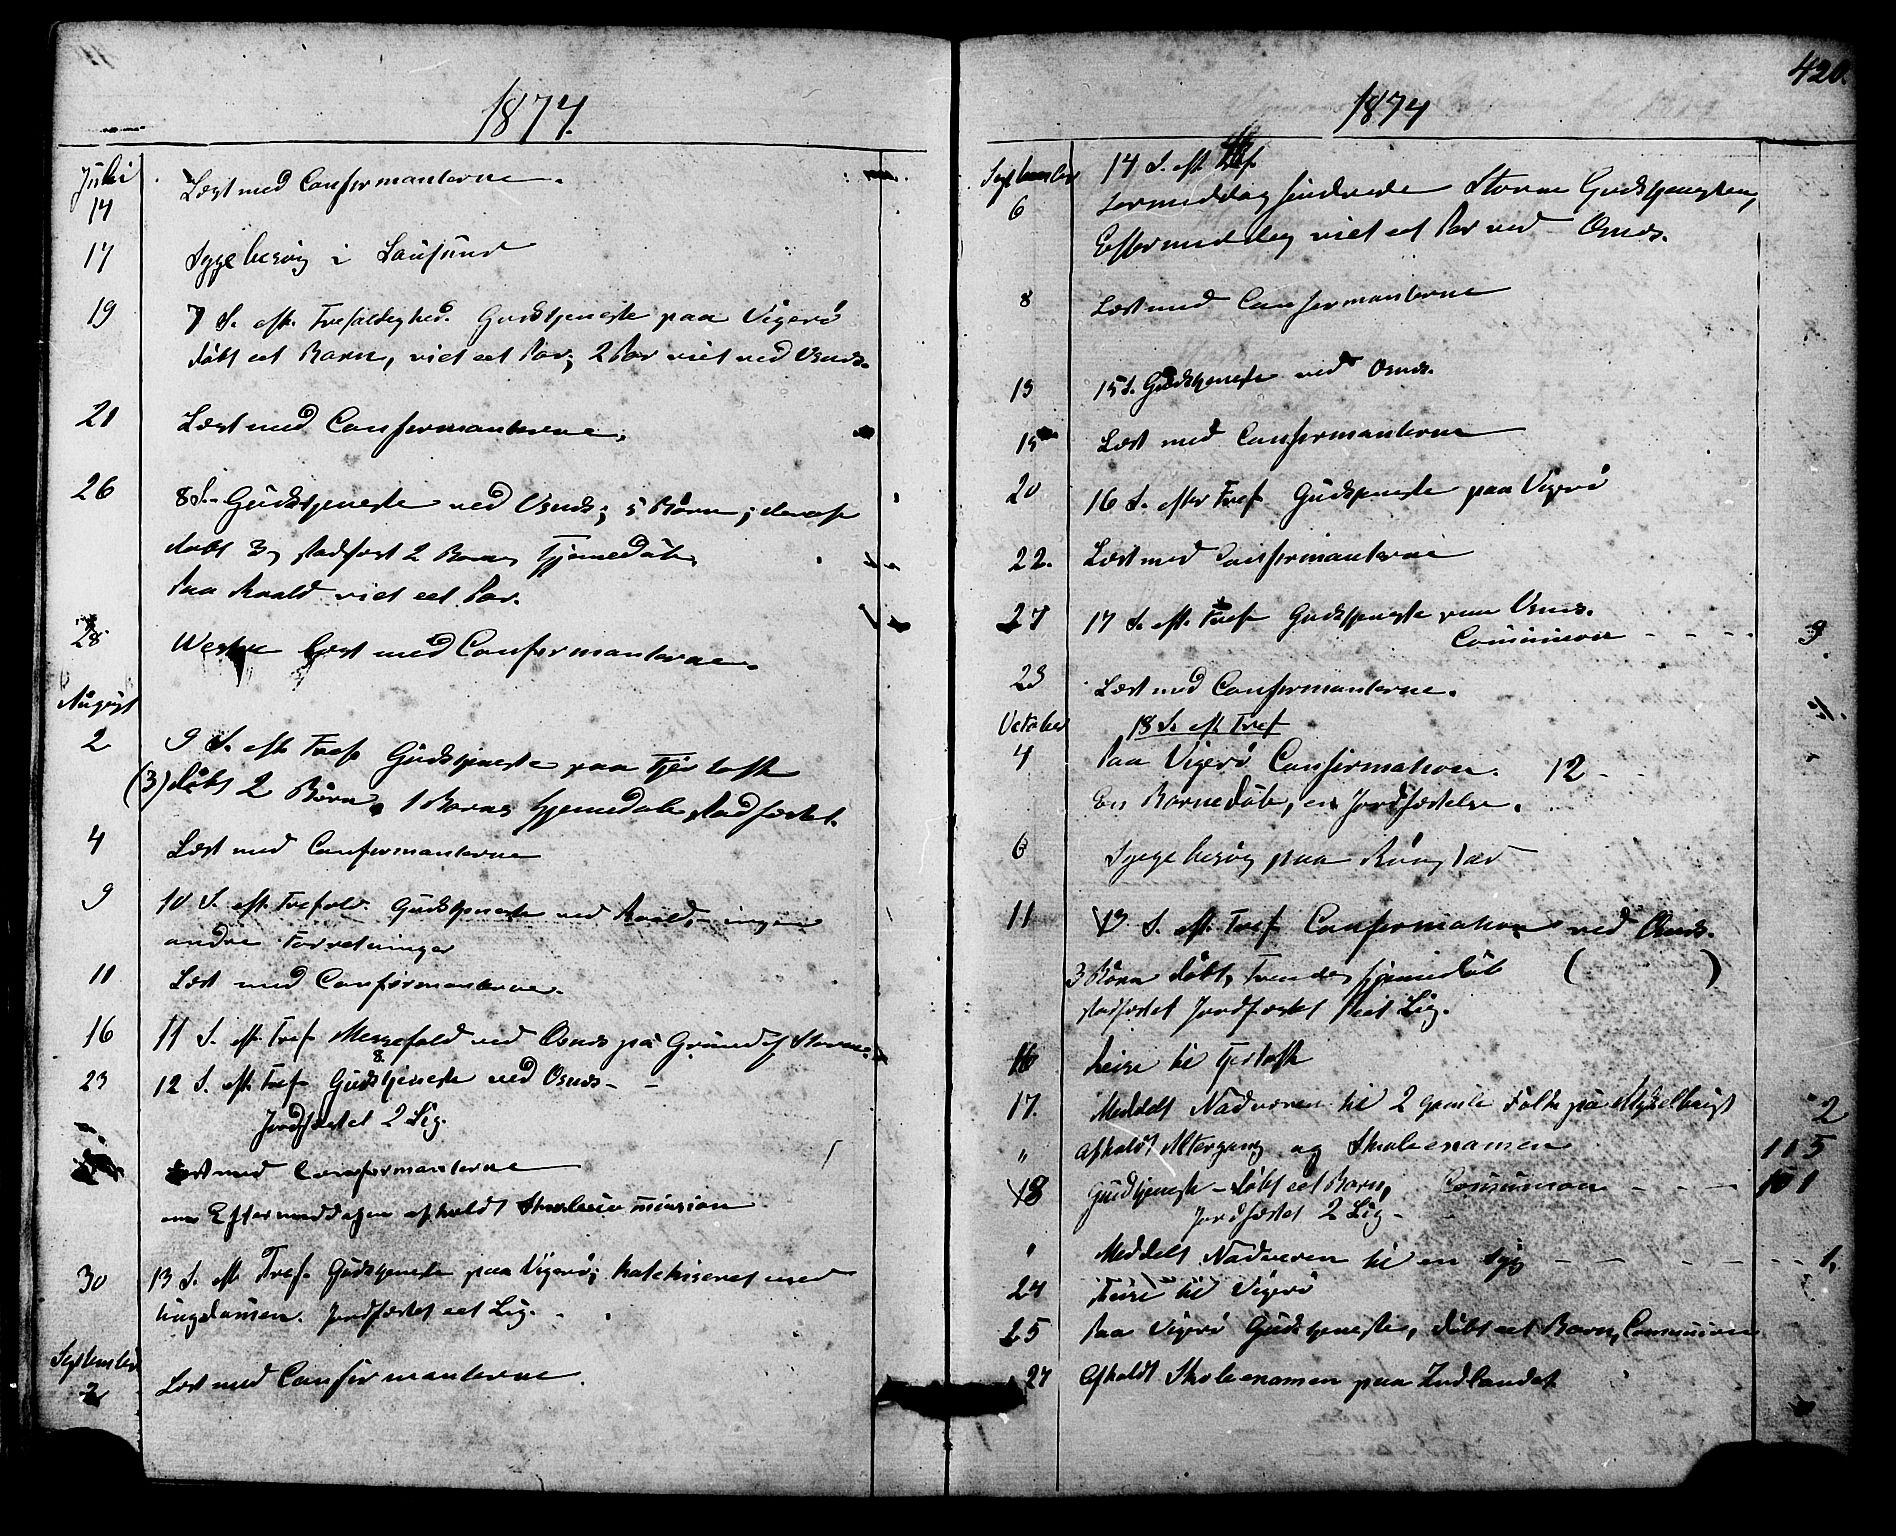 1874.
Juli
14 Læst med Confirmanterne.
17 Sygebesøg i
19 7 S. eft. Trefoldighed. Gudstjeneste paa Vigerø
døbt eet Barn, viet eet Par; 2 Par viet ved Osnds.
21 Læst med Confirmanterne.
26 8 S. Gudstjeneste ved Osnds; 5 Børn; deraf
døbt 3, stadfæst 2 Børns Hjemmedåb.
Paa Roald viet eet Par.
28 læst med Confirmanterne.
August
2 9 S. eft Tref Gudstjeneste paa Fjørtoft
(3) døbt 2 Børn, 1 Barns Hjemmedåb stadfæstet.
4 Læst med Confirmanterne
9 10 S. eft Trefold. Gudstjeneste ved Roald, ingen
andre Forretninger
11 Læst med Confirmanterne.
16 11 S. eft Tref Messefald ved Osnds på Grund af Storm.
23 12 S. eft Tref Gudstjeneste ved Osnds -
Jordfæstet 2 Lig.
Læst med Confirmanterne
om Eftermiddagen afholdt Skolecommission
30 13 S. eft Tref. Gudstjeneste paa Vigerø; katekiseret med
Ungdomen. Jordfæstet eet Lig.
September
2 Læst med Confirmanterne.
420.
1874
September 14 S. eft Tref
6 Formiddag hindrede Storm Gudstjenesten,
Eftermiddag viet eet Par ved Osnds.
8 Læst med Confirmanterne
13 15 S. Gudstjeneste ved Osnds.
15 Læst med Confirmanterne
20 16 S. efter Tref Gudstjeneste paa Vigerø
22. Læst med Confirmanterne
27 17 S. eft. Tref Gudstjeneste paa Osnds.
Communion - - - - 9
23 Læst med Confirmanterne.
October 18 S. eft Tref
4 Paa Vigerø Confirmation. 12 - -
En Barnedåb, en Jordfæstelse.
6 Sygebesøg paa
11 19 S. eft. Tref Confirmation ved Osnds.
3 Børn døbt, Hjemmedåb ( )
stadfæstet Jordfæstet eet Lig.
16 Reise til Fjørtoft
17. Meddelt Nadveren til 2 gamle Folk på 2
" Afholdt Altergang og Skoleexamen 115
18 Gudstjeneste - døbt eet Barn, Communion - - - - 101
Jordfæstet 2 Lig -
" Meddelt Nadveren til en syg - - - - - 1.
24 Reise til Vigerø
25 Paa Vigerø Gudstjeneste, døbt eet Barn, Communion
27 Afholdt Skoleexamen paa Indlandet